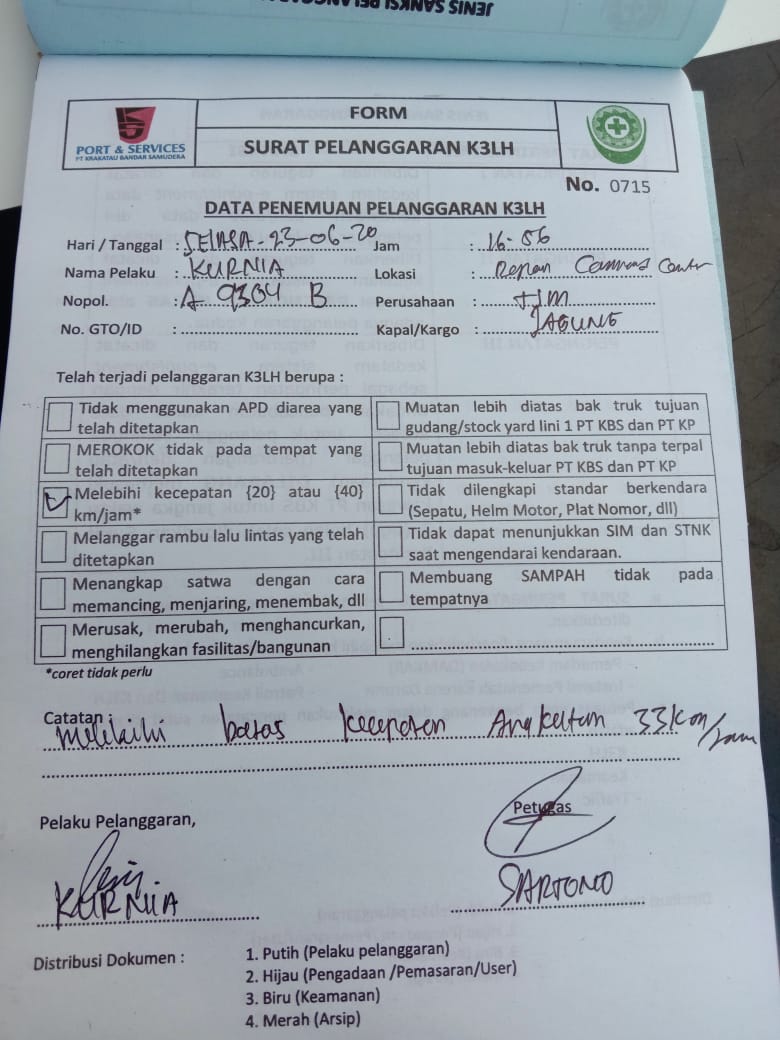 JENIS SANKSI PELANGGARAN
PORT & SERVICES
PT KRAKATAU BANDAR SAMUDERA
FORM
SURAT PELANGGARAN K3LH
No. 0715
DATA PENEMUAN PELANGGARAN K3LH
Hari / Tanggal : SELASA-23-06-20 Jam : 16-56
Nama Pelaku : KURNIA Lokasi : Depan Control
Nopol. : A 9304 B Perusahaan : TJM
No. GTO/ID : Kapal/Kargo : JAGUNG
Telah terjadi pelanggaran K3LH berupa :
Tidak menggunakan APD diarea yang telah ditetapkan
Muatan lebih diatas bak truk tujuan gudang/stock yard lini 1 PT KBS dan PT KP
MEROKOK tidak pada tempat yang telah ditetapkan
Muatan lebih diatas bak truk tanpa terpal tujuan masuk-keluar PT KBS dan PT KP
Melebihi kecepatan {20} atau {40} km/jam*
Tidak dilengkapi standar berkendara (Sepatu, Helm Motor, Plat Nomor, dll)
Melanggar rambu lalu lintas yang telah ditetapkan
Tidak dapat menunjukkan SIM dan STNK saat mengendarai kendaraan.
Menangkap satwa dengan cara memancing, menjaring, menembak, dll
Membuang SAMPAH tidak pada tempatnya
Merusak, merubah, menghancurkan, menghilangkan fasilitas/bangunan
*coret tidak perlu
Catatan :
melebihi batas kecepatan 33 km/jam
Pelaku Pelanggaran, Petugas
KURNIA SARTONO
Distribusi Dokumen : 1. Putih (Pelaku pelanggaran)
2. Hijau (Pengadaan /Pemasaran/User)
3. Biru (Keamanan)
4. Merah (Arsip)